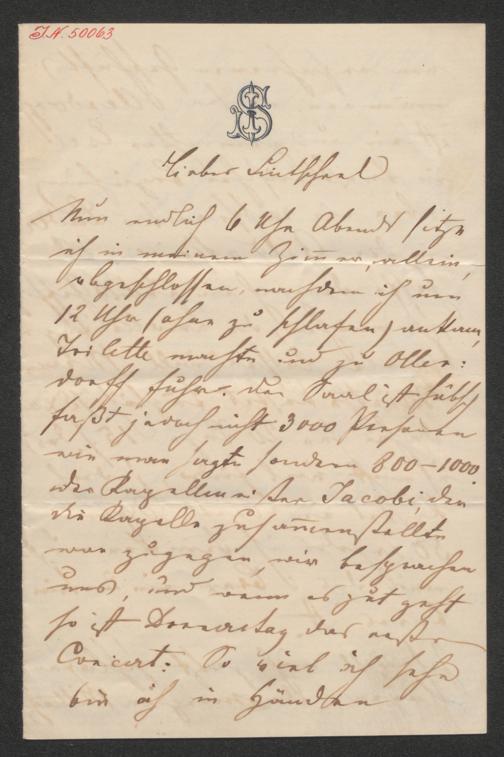 I.N. 50063
JS
Lieber
Nun endlich 6 Uhr Abends sitze
ich in meinem Zimmer, allein,
abgeschlossen, nachdem ich um
12 Uhr (ohne zu schlafen) ankam,
Toilette machte und zu Ollen:
dorff fuhr. Der Saal ist hübsch
faßt jedoch nicht 3000 Personen
wie man sagte sondern 800–1000
der Kapellmeister Jacobi, der
die Kapelle zusam̄enstellte
war zugegen, wir besprachen
uns, und wenn es gut geht
so ist Donnerstag das erste
Concert: So viel ich sehe
bin ich in Händen